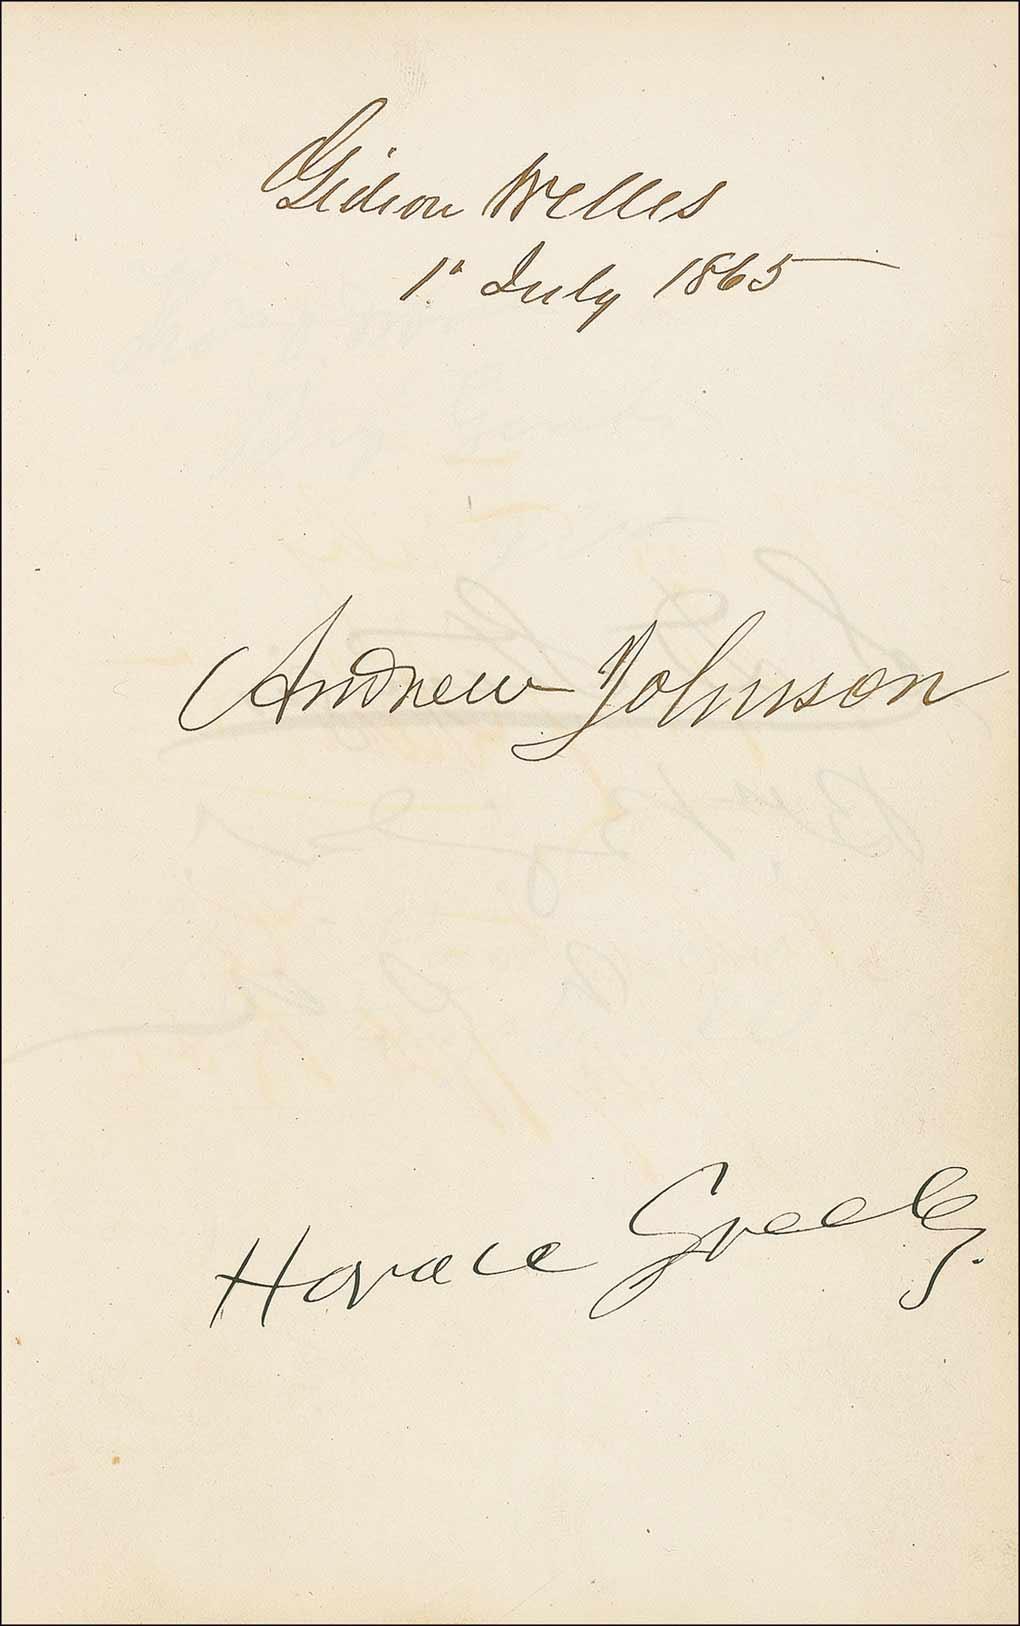 Gideon Welles
1" July 1865
Andrew Johnson
Horace Greeley.